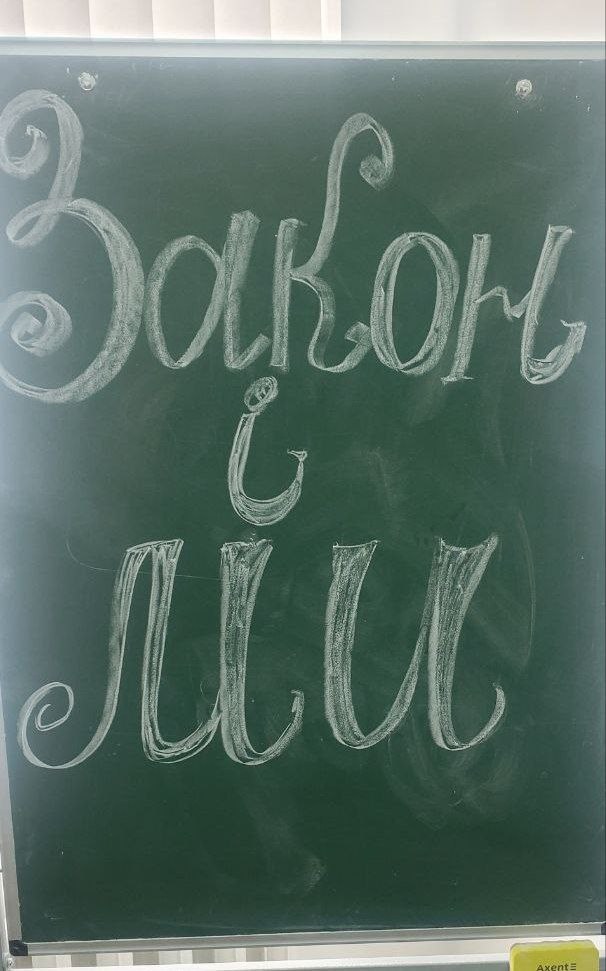 Закон
і
ми
Axent